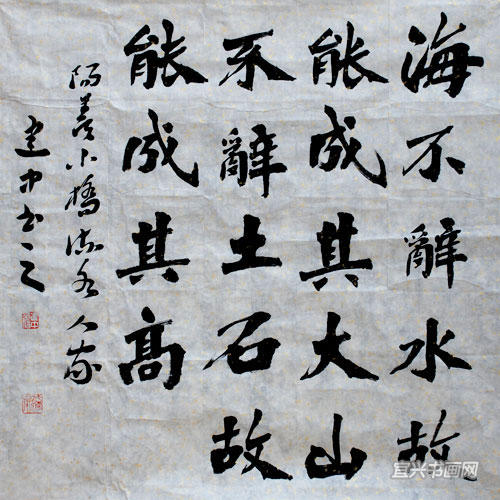 海不辭水故
能成其大山
不辭土石故
能成其高
陽羨小橋流水人家
建中书之
宜兴书画网